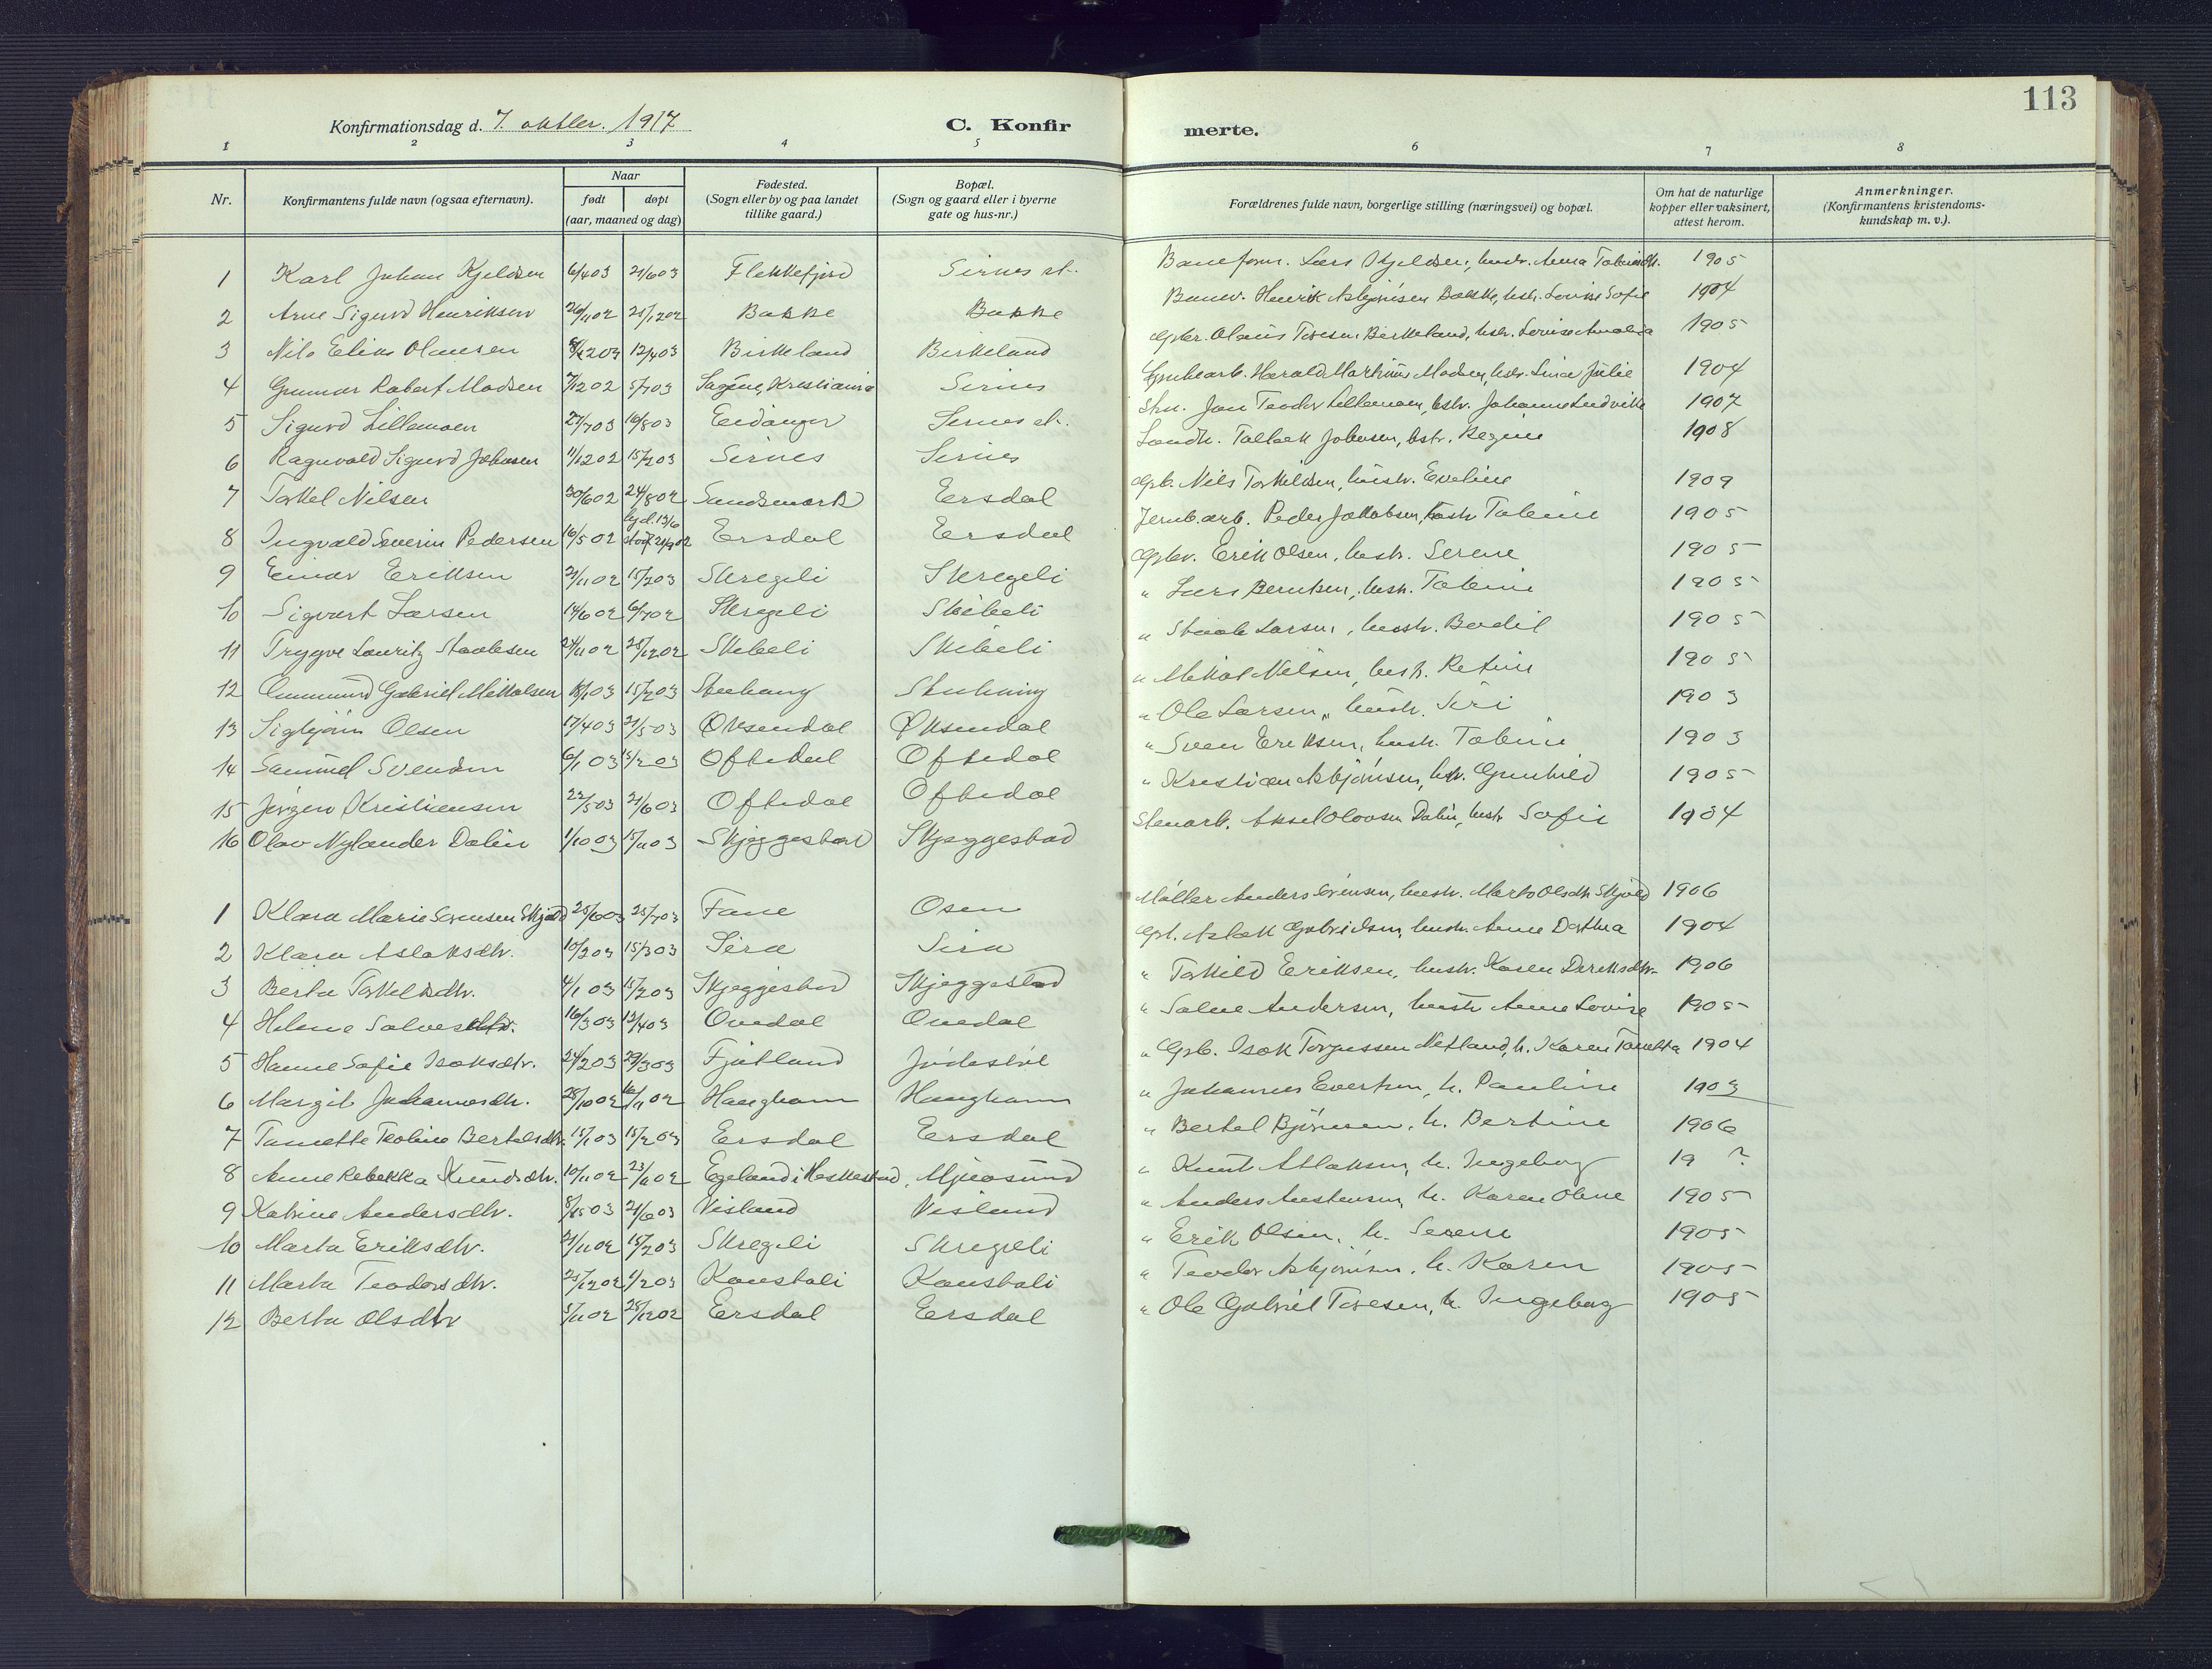 113
Konfirmationsdag d. 7. oktber. 1917 C. Konfir merte.
1 2 3 4 5 6 7 8
Nr. Konfirmantens fulde navn (ogsaa efternavn). Naar født døpt (aar, maaned og dag) Fødested. (Sogn eller by og paa landet tillike gaard.) Bopæl. (Sogn og gaard eller i byerne gate og hus-nr.) Forældrenes fulde navn, borgerlige stilling (næringsvei) og bopæl. Om hat de naturlige kopper eller vaksinert, attest herom. Anmerkninger. (Konfirmantens kristendoms-kundskap m. v.).
1 Karl Johan Kjeldsen 6/4 03 21/6 03 Flekkefjord Sirnes st. Baneform. Lars Kjeldsen, hustr. Anna 1905
2 Arne Sigurd Henriksen 26/11 02 25/12 02 Bakke Bakke Banev. Henrik Asbjørnsen Bakke, hstr. Lovise Sofie 1904
3 Nils Elias Olausen 12/4 03 Birkeland Birkeland Gpbr. Olaus Tosesen Birkeland, hstr. Lovise Amalia 1905
4 Gunnar Robert Madsen 7/12 02 5/7 03 Sagene, Kristiania Sirnes Harald Martinius Madsen, hstr. Lina Julie 1904
5 Sigurd Lillemoen 27/7 03 16/8 03 Eidanger Sirnes st. Jon Teodor Lillemoen, hstr. Johanne Ludvikke 1907
6 Ragnvald Sigurd Jobsen 11/12 02 15/2 03 Sirnes Sirnes Landh. Tallak Jobsen, hstr. Regine 1908
7 Torkel Nilsen 30/6 02 24/8 02 Sandsmark Ersdal Gpb. Nils Torkildsen, hustr. Eveline 1909
8 Ingvald Severin Pedersen 16/5 02 hjd. 13/6 stadf 21/9 02 Ersdal Ersdal Jernb.arb. Peder Jakobsen, hustr Tobine 1905
9 Einar Eriksen 21/11 02 15/2 03 Skregeli Skregeli Gpbr. Erik Olsen, hustr. Serene 1905
10 Sigvart Larsen 14/6 02 6/7 02 Skregeli Skibeli " Lars Berntsen, hustr. Tobine 1905
11 Trygve Lauritz Staalesen 24/11 02 25/12 02 Skibeli Skibeli " Staale Larsen, hustr. Bodil 1905
12 Ommund Gabriel Mikkalsen 18/1 03 15/2 03 Stuhaug Stuhaug " Mikkal Nilsen, hustr. Retine 1905
13 Sigbjørn Olsen 17/4 03 21/5 03 Øksendal Øksendal " Ole Larsen, hustr. Siri 1903
14 Samuel Svendsen 6/1 03 15/2 03 Oftedal Oftedal " Sven Eriksen, hustr. Tobine 1903
15 Jørgen Kristiensen 22/5 03 21/6 03 Oftedal Oftedal " Kristian Asbjørnsen, hstr. Gunhild 1905
16 Olav Nylander Dalin 1/10 03 15/11 03 Skjeggestad Skjeggestad Stenarb. Aksel Olovson Dalin, hustr Sofie 1904
1 Klara Marie Sørensen Skjold 25/6 03 25/7 03 Fane Osen Møller Anders Sørensen, hustr. Marta Olsdtr Skjold 1906
2 Klara Aslaksdtr. 10/2 03 15/3 03 Sira Sira Gpb. Aslak Gabrielsen, hustr. Anne Dorthea 1904
3 Berta Torkildsdtr. 4/1 03 15/2 03 Skjeggestad Skjeggestad " Torkild Eriksen, hustr. Karen Diriksdtr. 1906
4 Helene Salvesdtr. 16/3 03 12/4 03 Ovedal Ovedal " Salve Andersen, hustr Anne Lovise 1905
5 Hanne Sofie Isaksdtr. 24/2 03 29/3 03 Fjotland Jødestøl " Gpb. Isak Torgussen Netland, h. Karen Tonetta 1904
6 Margit Johannesdtr. 28/10 02 16/11 02 Haugham Haugham " Johannes Evertsen, h. Pauline 1903
7 Tomette Teoline Bertelsdtr. 15/1 03 15/2 03 Ersdal Ersdal " Bertel Bjørnsen, h. Bertine 1906
8 Anne Rebekka Knudsdtr. 10/11 02 23/11 02 Egeland i Heskestad, Mjuosund " Knut Atlaksen, h. Ingeborg 19 ?
9 Katrine Andersdtr. 8/5 03 21/6 03 Visland Visland " Anders Austensen, h. Karen Oline 1905
10 Marta Eriksdtr. 21/11 02 15/2 03 Skregeli Skregeli " Erik Olsen, h. Serene 1905
11 Marta Teodorsdtr. 25/12 02 1/2 03 Konstali Konstali " Teodor Asbjørnsen, h. Karen 1905
12 Berta Olsdtr 5/11 02 28/12 02 Ersdal Ersdal " Ole Gabriel Tosesen, h. Ingeborg 1905